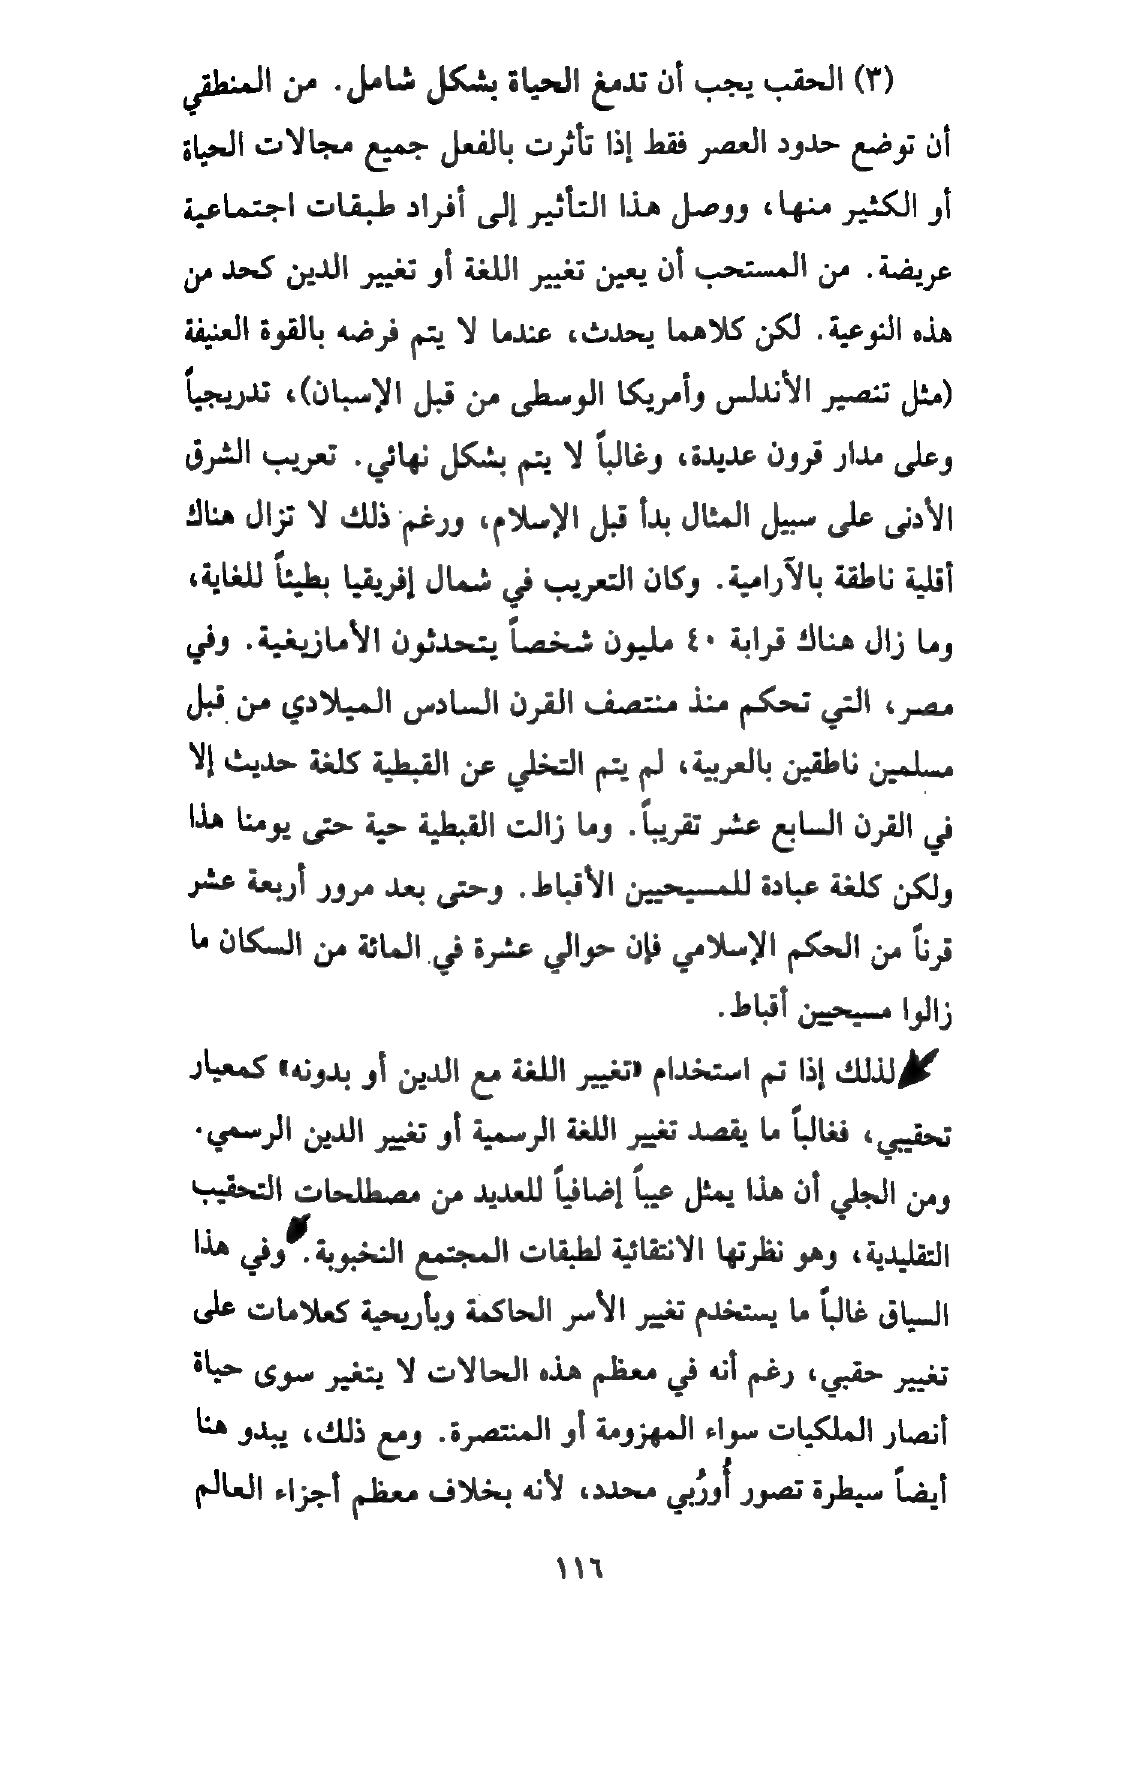 (٣) الحقب يجب أن تدمغ الحياة بشكل شامل. من المنطقي
أن توضع حدود العصر فقط إذا تأثرت بالفعل جميع مجالات الحياة
أو الكثير منها، ووصل هذا التأثير إلى أفراد طبقات اجتماعية
عريضة. من المستحب أن يعين تغيير اللغة أو تغيير الدين كحد من
هذه النوعية. لكن كلاهما يحدث، عندما لا يتم فرضه بالقوة العنيفة
(مثل تنصير الأندلس وأمريكا الوسطى من قبل الإسبان)، تدريجياً
وعلى مدار قرون عديدة، وغالباً لا يتم بشكل نهائي. تعريب الشرق
الأدنى على سبيل المثال بدأ قبل الإسلام، ورغم ذلك لا تزال هناك
أقلية ناطقة بالآرامية. وكان التعريب في شمال إفريقيا بطيئاً للغاية،
وما زال هناك قرابة ٤٠ مليون شخصاً يتحدثون الأمازيغية. وفي
مصر، التي تحكم منذ منتصف القرن السادس الميلادي من قبل
مسلمين ناطقين بالعربية، لم يتم التخلي عن القبطية كلغة حديث إلا
في القرن السابع عشر تقريباً. وما زالت القبطية حية حتى يومنا هذا
ولكن كلغة عبادة للمسيحيين الأقباط. وحتى بعد مرور أربعة عشر
قرناً من الحكم الإسلامي فإن حوالي عشرة في المائة من السكان ما
زالوا مسيحيين أقباط.
لذلك إذا تم استخدام «تغيير اللغة مع الدين أو بدونه» كمعيار
تحقيبي، فغالباً ما يقصد تغيير اللغة الرسمية أو تغيير الدين الرسمي.
ومن الجلي أن هذا يمثل عيباً إضافياً للعديد من مصطلحات التحقيب
التقليدية، وهو نظرتها الانتقائية لطبقات المجتمع النخبوية. وفي هذا
السياق غالباً ما يستخدم تغيير الأسر الحاكمة وبأريحية كعلامات على
تغيير حقبي، رغم أنه في معظم هذه الحالات لا يتغير سوى حياة
أنصار الملكيات سواء المهزومة أو المنتصرة. ومع ذلك، يبدو هنا
أيضاً سيطرة تصور أُورُبي محدد، لأنه بخلاف معظم أجزاء العالم
١١٦